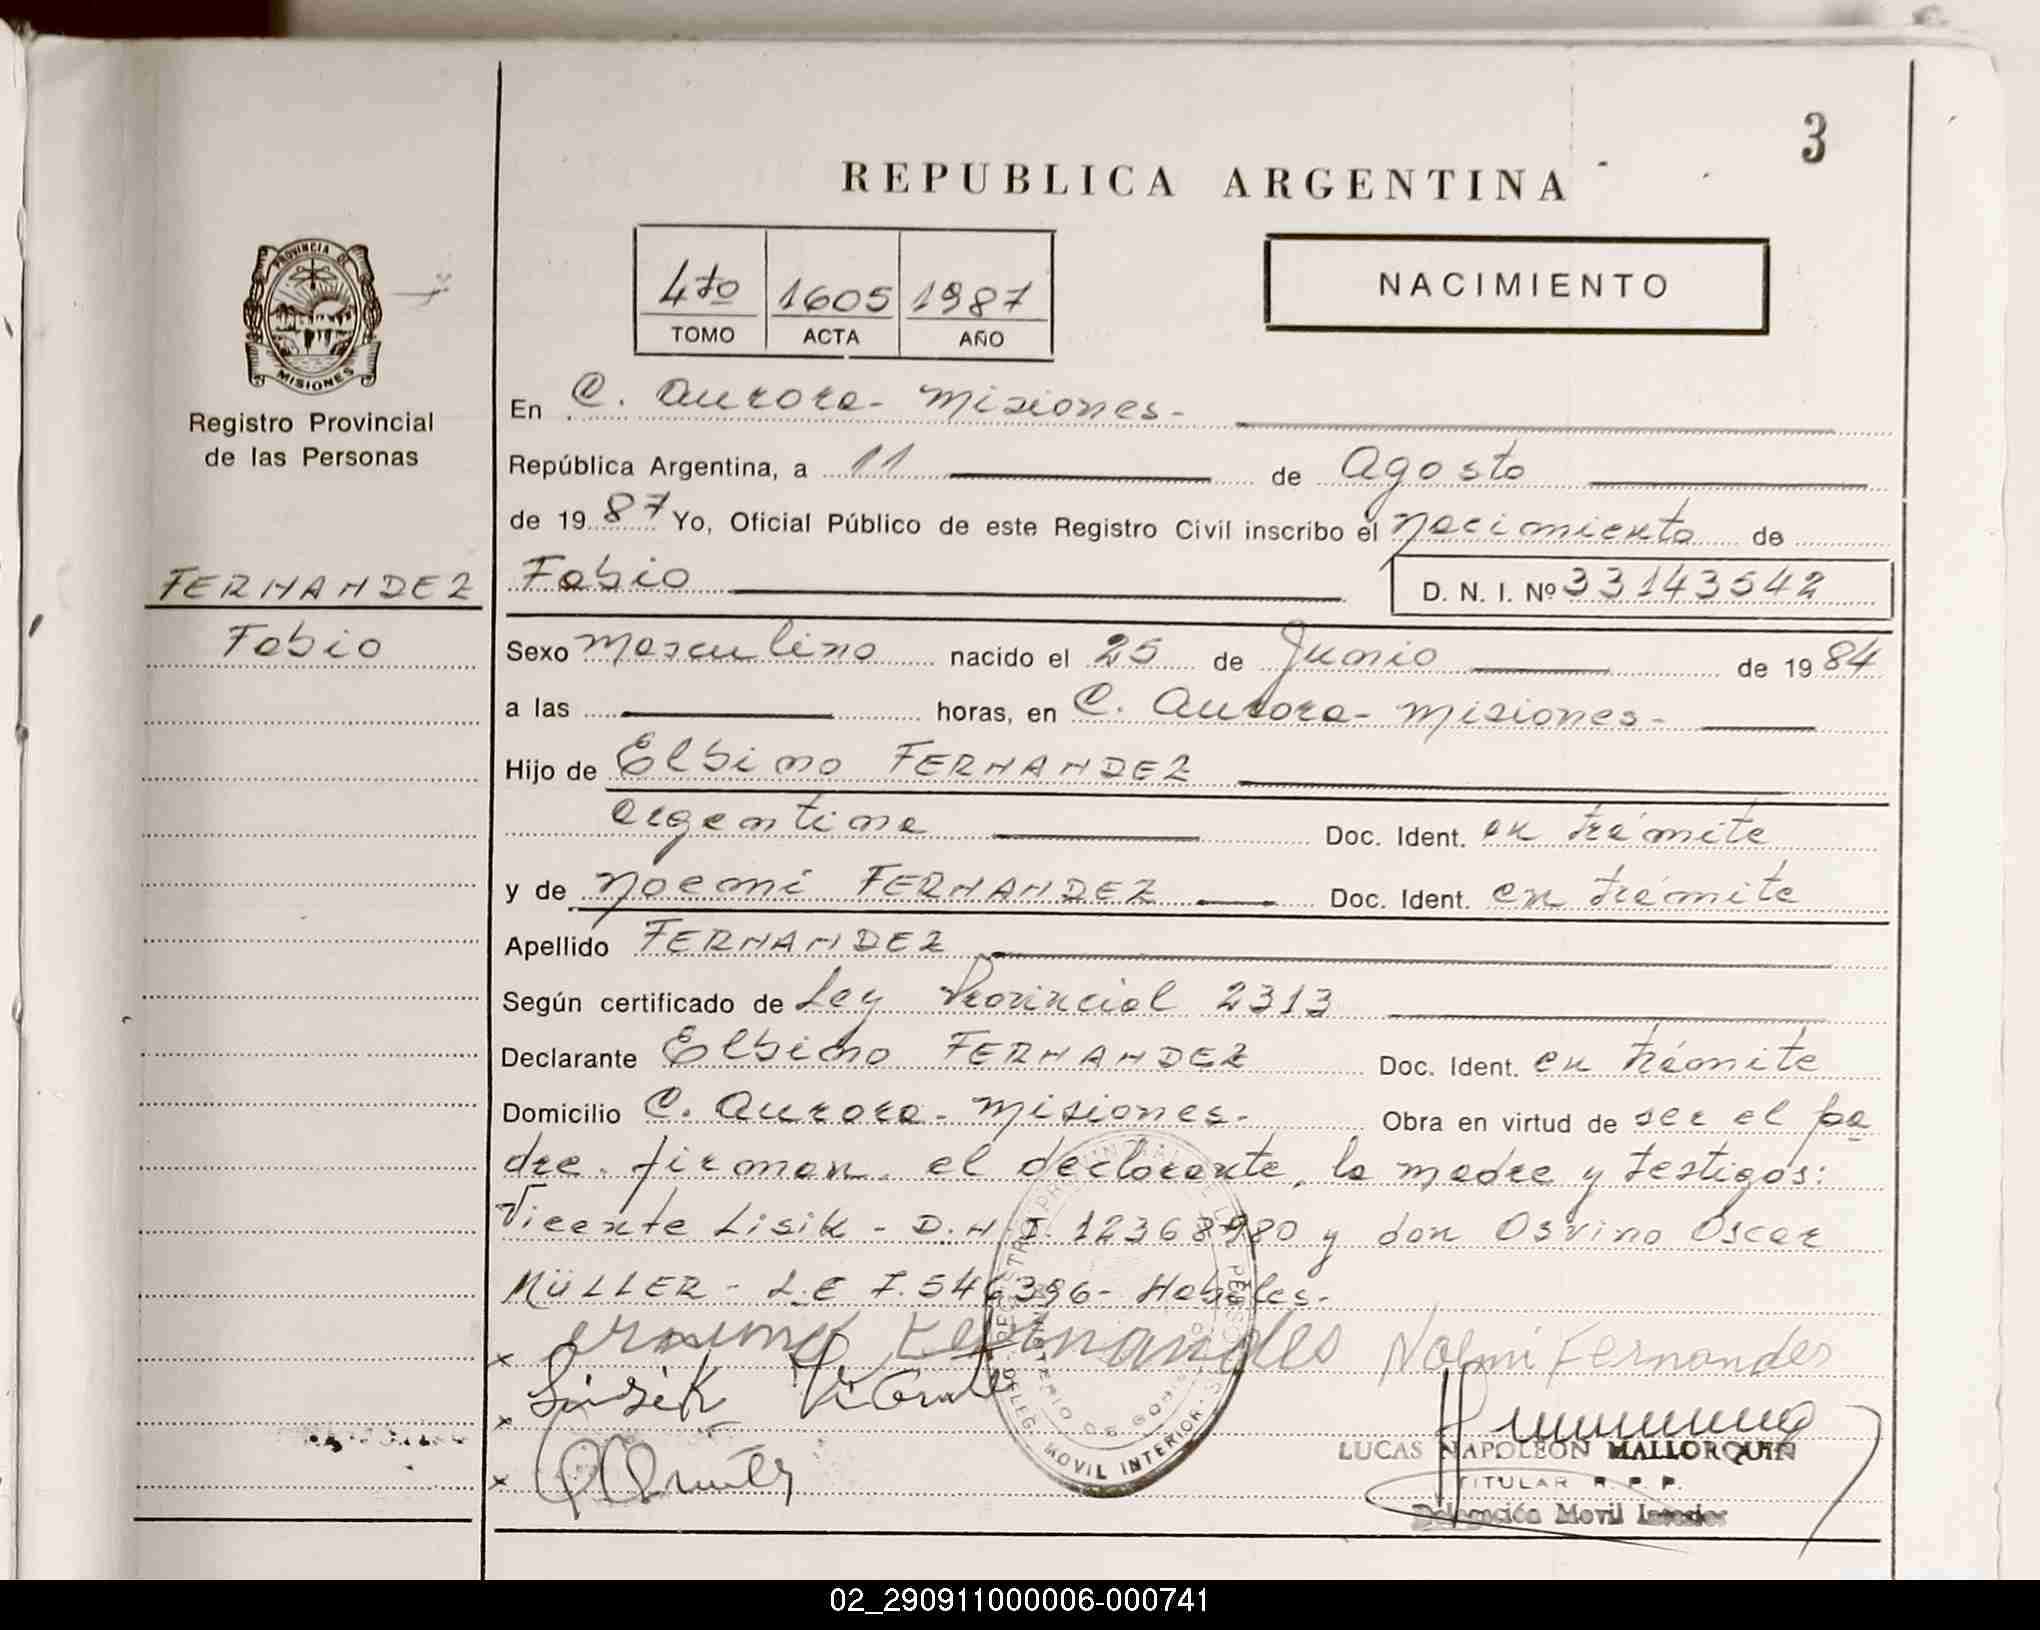 3
REPUBLICA ARGENTINA
4to 1605 1987
TOMO ACTA AÑO
NACIMIENTO
PROVINCIA DE
MISIONES
Registro Provincial
de las Personas
FERNANDEZ
Fabio
En C. Aurora - Misiones -
República Argentina, a 11 de Agosto
de 1987 Yo, Oficial Público de este Registro Civil inscribo el Nacimiento de
Fabio D. N. I. Nº 33143542
Sexo Masculino nacido el 25 de Junio de 1984
a las horas, en C. Aurora - Misiones -
Hijo de Elbino FERNANDEZ
argentina Doc. Ident. en trámite
y de Noemi FERNANDEZ Doc. Ident. en trámite
Apellido FERNANDEZ
Según certificado de Ley Provincial 2313
Declarante Elbino FERNANDEZ Doc. Ident. en trámite
Domicilio C. Aurora - Misiones - Obra en virtud de ser el pa
dre. firman. el declarante, la madre y testigos:
Vicente Lisik - D.N.I. 12368980 y don Osvino Oscar
MÜLLER - L.E 7.546396 - Habiles.-
x Fernandes Noemi Fernandes
x Lisik
x
DELEG. MOVIL INTERIOR
LUCAS NAPOLEON MALLORQUIN
TITULAR R. P. P.
Delegación Movil Interior
02_290911000006-000741